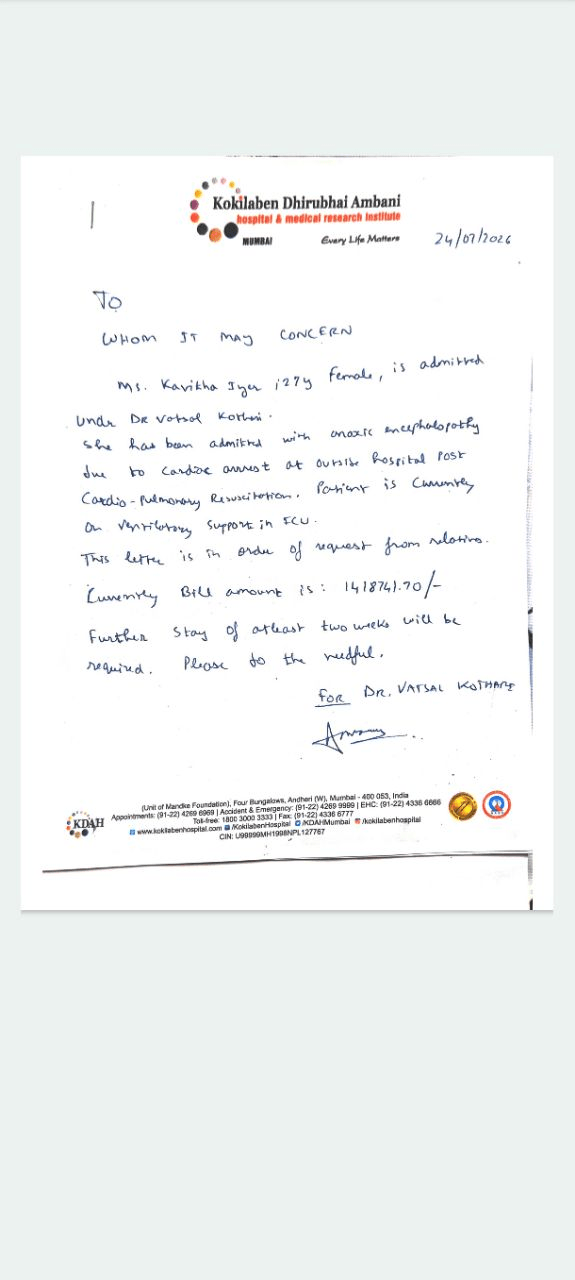 Kokilaben Dhirubhai Ambani
hospital & medical research institute
MUMBAI Every Life Matters
24/07/2026
TO
WHOM IT MAY CONCERN
Ms. Kavikha Iyer, 27y Female, is admitted
under DR Vatsal Kothari.
She has been admitted with anoxic encephalopathy
due to cardiac arrest at outside hospital Post
Cardio-Pulmonary Resuscitation. Patient is Currently
On Ventilatory Support in ICU.
This letter is in order of request from relative.
Currently Bill amount is: 1418741.70/-
Further Stay of atleast two weeks will be
required. Please do the needful.
FOR DR. VATSAL KOTHARI
KDAH
(Unit of Mandke Foundation), Four Bungalows, Andheri (W), Mumbai - 400 053, India
Appointments: (91-22) 4269 6969 | Accident & Emergency: (91-22) 4269 9999 | EHC: (91-22) 4336 6666
Toll-free: 1800 3000 3333 | Fax: (91-22) 4336 6777
www.kokilabenhospital.com /KokilabenHospital /KDAHMumbai /kokilabenhospital
CIN: U99999MH1998NPL127767